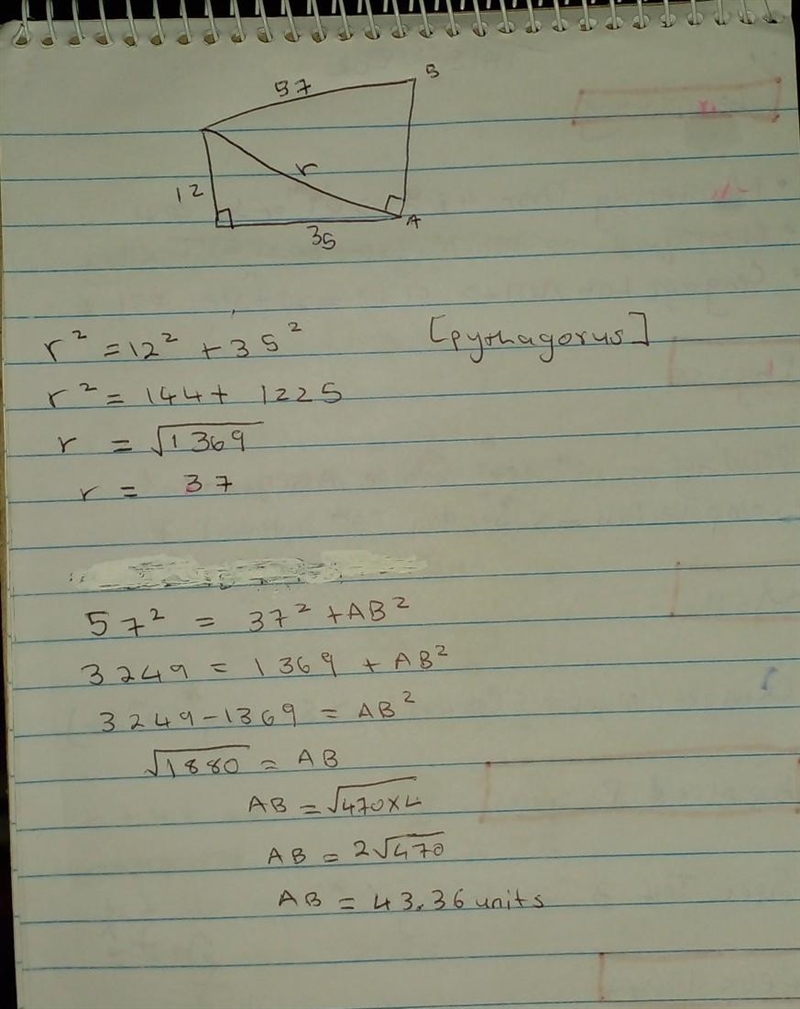 57
B
r
12
A
35
r² = 12² + 35² [pythagorus]
r² = 144 + 1225
r = √1369
r = 37
57² = 37² + AB²
3249 = 1369 + AB²
3249 - 1369 = AB²
√1880 = AB
AB = √470×4
AB = 2√470
AB = 43.36 units